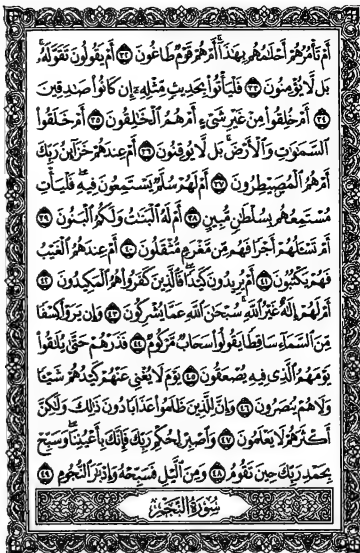 أَمْ تَأْمُرُهُمْ أَحْلَامُهُم بِهَٰذَا أَمْ هُمْ قَوْمٌ طَاغُونَ ٣٢ أَمْ يَقُولُونَ تَقَوَّلَهُ
بَل لَّا يُؤْمِنُونَ ٣٣ فَلْيَأْتُوا۟ بِحَدِيثٍ مِّثْلِهِ إِن كَانُوا۟ صَادِقِينَ
٣٤ أَمْ خُلِقُوا۟ مِنْ غَيْرِ شَيْءٍ أَمْ هُمُ الْخَالِقُونَ ٣٥ أَمْ خَلَقُوا۟
السَّمَٰوَٰتِ وَالْأَرْضَ بَل لَّا يُوقِنُونَ ٣٦ أَمْ عِندَهُمْ خَزَائِنُ رَبِّكَ
أَمْ هُمُ الْمُصَيْطِرُونَ ٣٧ أَمْ لَهُمْ سُلَّمٌ يَسْتَمِعُونَ فِيهِ فَلْيَأْتِ
مُسْتَمِعُهُم بِسُلْطَانٍ مُّبِينٍ ٣٨ أَمْ لَهُ الْبَنَاتُ وَلَكُمُ الْبَنُونَ ٣٩
أَمْ تَسْأَلُهُمْ أَجْرًا فَهُم مِّن مَّغْرَمٍ مُّثْقَلُونَ ٤٠ أَمْ عِندَهُمُ الْغَيْبُ
فَهُمْ يَكْتُبُونَ ٤١ أَمْ يُرِيدُونَ كَيْدًا فَالَّذِينَ كَفَرُوا۟ هُمُ الْمَكِيدُونَ ٤٢
أَمْ لَهُمْ إِلَٰهٌ غَيْرُ اللَّهِ سُبْحَانَ اللَّهِ عَمَّا يُشْرِكُونَ ٤٣ وَإِن يَرَوْا۟ كِسْفًا
مِّنَ السَّمَاءِ سَاقِطًا يَقُولُوا۟ سَحَابٌ مَّرْكُومٌ ٤٤ فَذَرْهُمْ حَتَّىٰ يُلَاقُوا۟
يَوْمَهُمُ الَّذِي فِيهِ يُصْعَقُونَ ٤٥ يَوْمَ لَا يُغْنِي عَنْهُمْ كَيْدُهُمْ شَيْئًا
وَلَا هُمْ يُنصَرُونَ ٤٦ وَإِنَّ لِلَّذِينَ ظَلَمُوا۟ عَذَابًا دُونَ ذَٰلِكَ وَلَٰكِنَّ
أَكْثَرَهُمْ لَا يَعْلَمُونَ ٤٧ وَاصْبِرْ لِحُكْمِ رَبِّكَ فَإِنَّكَ بِأَعْيُنِنَا وَسَبِّحْ
بِحَمْدِ رَبِّكَ حِينَ تَقُومُ ٤٨ وَمِنَ اللَّيْلِ فَسَبِّحْهُ وَإِدْبَارَ النُّجُومِ ٤٩
سُورَةُ النَّجْمِ